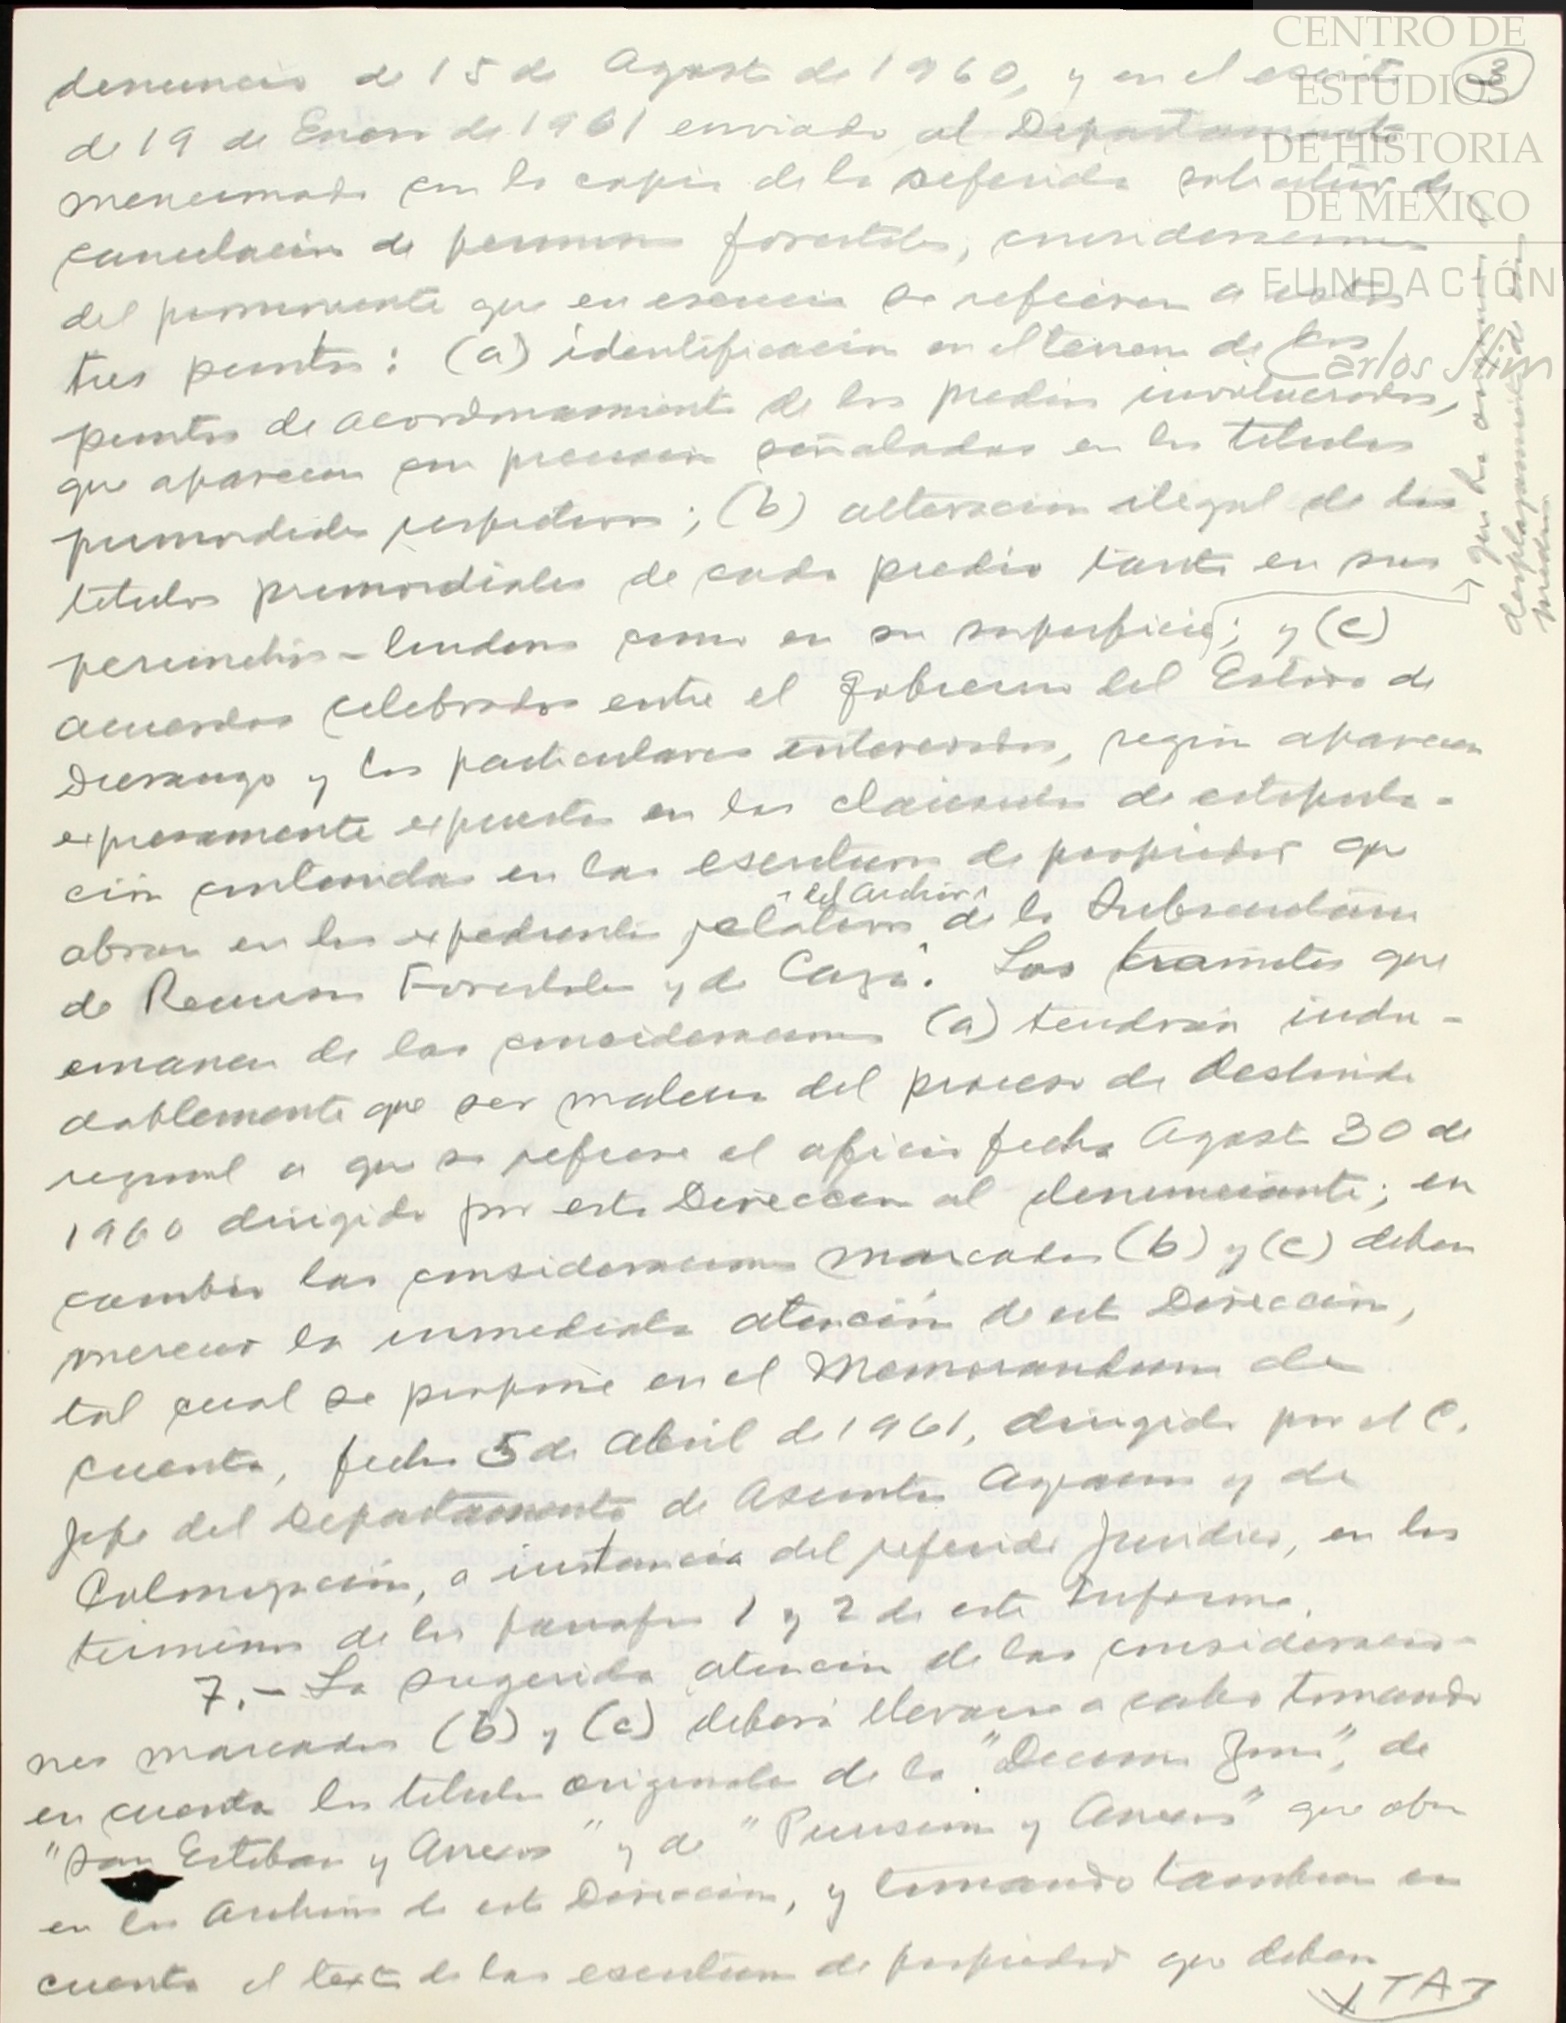 CENTRO DE
ESTUDIOS
DE HISTORIA
DE MEXICO
FUNDACIÓN
Carlos Slim
3
denuncia de 15 de Agosto de 1960, y en el escrito
de 19 de Enero de 1961 enviado al Departamento
mencionado con la copia de la referida solicitud de
cancelación de permisos forestales, consideraciones
del promovente que en esencia se refieren a estos
tres puntos: (a) identificación en el terreno de los
puntos de acordonamiento de los predios involucrados,
que aparecen con precisión señalados en los títulos
primordiales respectivos; (b) alteración ilegal de los
títulos primordiales de cada predio tanto en sus
perímetros-linderos como en su superficie; y (c)
que ha originado el
desplazamiento de
predios
acuerdos celebrados entre el Gobierno del Estado de
Durango y los particulares interesados, según aparecen
expresamente expuestos en las cláusulas de estipula-
ción contenidas en las escrituras de propiedad que
obran en los expedientes relativos de la Subsecretaría
del Archivo
de Recursos Forestales y de Caza. Los trámites que
emanen de las consideraciones (a) tendrán indu-
dablemente que ser materia del proceso de deslinde
regional a que se refiere el oficio fecha Agosto 30 de
1960 dirigido por esta Dirección al denunciante; en
cambio las consideraciones marcadas (b) y (c) deben
merecer la inmediata atención de esta Dirección,
tal cual se propone en el Memorandum de
cuenta, fecha 5 de Abril de 1961, dirigido por el C.
Jefe del Departamento de Asuntos Agrarios y de
Colonización, a instancia del referido Jurídico, en los
términos de los párrafos 1 y 2 de este Informe.
7.- La sugerida atención de las consideracio-
nes marcadas (b) y (c) deberá llevarse a cabo tomando
en cuenta los títulos originales de la "Decema Zona", de
"San Esteban y Anexos" y de "Purísima y Anexos" que obran
en los Archivos de esta Dirección, y tomando también en
cuenta el texto de las escrituras de propiedad que deben